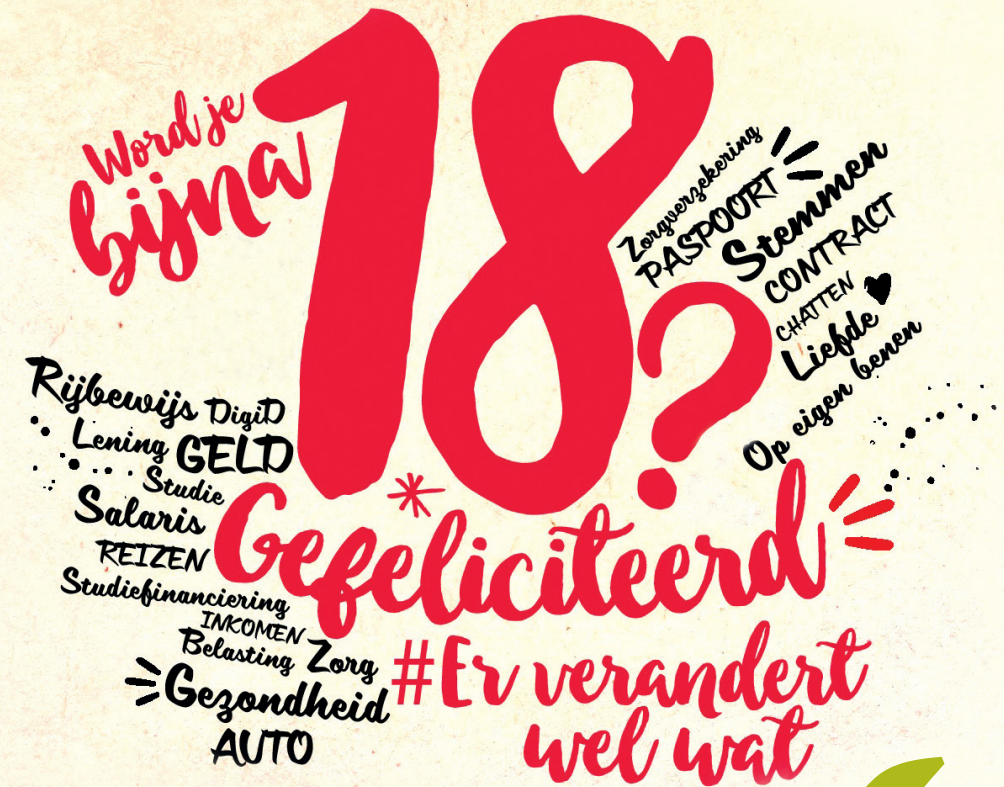 Word je
bijna
18?
Zorgverzekering
PASPOORT
Stemmen
CONTRACT
CHATTEN
Liefde
Op eigen benen
Rijbewijs DigiD
Lening GELD
Studie
Salaris
REIZEN
Studiefinanciering
INKOMEN
Belasting Zorg
Gezondheid
AUTO
*
Gefeliciteerd
#Er verandert
wel wat